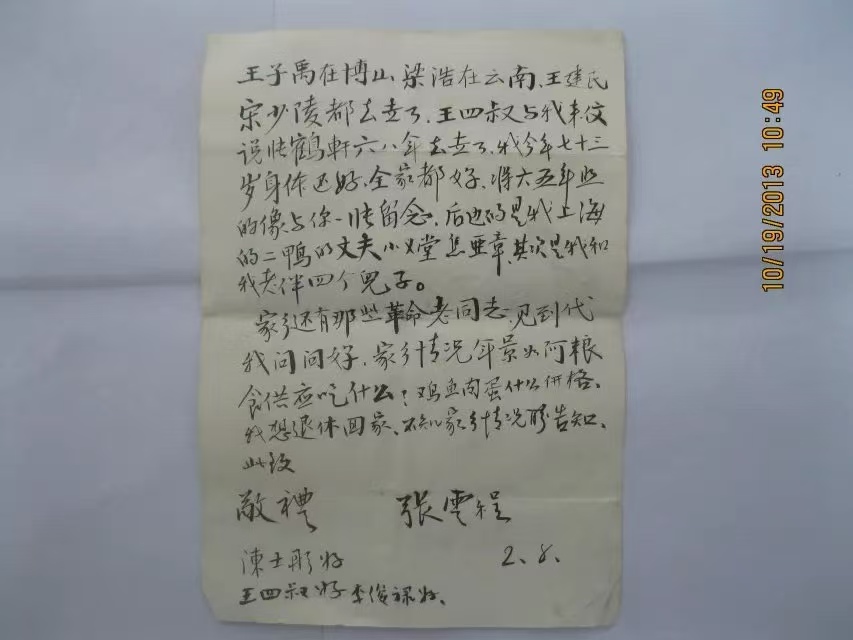 王子禹在博山梁浩在云南、王建民
宋少陵都去世了、王四叔与我来信
说张鹤軒六八年去世了、我今年七十三
岁身体还好、全家都好、将六五年照
的像与你一张留念、后边的是我上海
的二鸭的丈夫小义堂焦亜章、其次是我和
我老伴四个兒子。
家乡还有那些革命老同志、见到代
我问问好、家乡情况年景如何粮
食供应吃什么？鸡鱼肉蛋什么价格、
我想退休回家、不知家乡情况盼告知、
此致
敬禮 張雲程
陳士彤好 2.8.
王四叔好李俊禄好、
10/19/2013 10:49